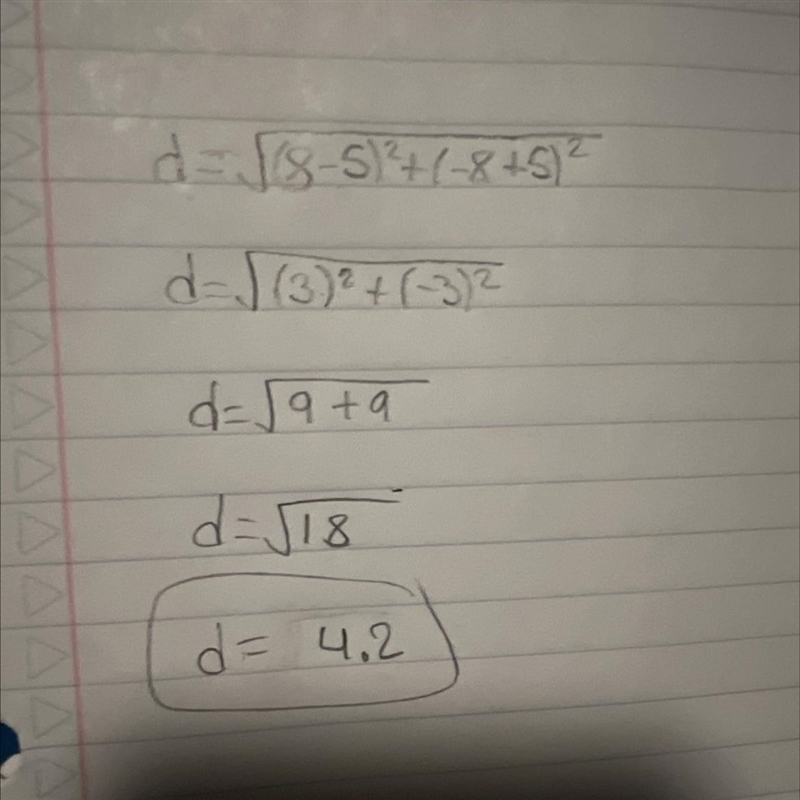 d=√(8-5)²+(-8+5)²
d=√(3)²+(-3)²
d=√9+9
d=√18
d= 4.2